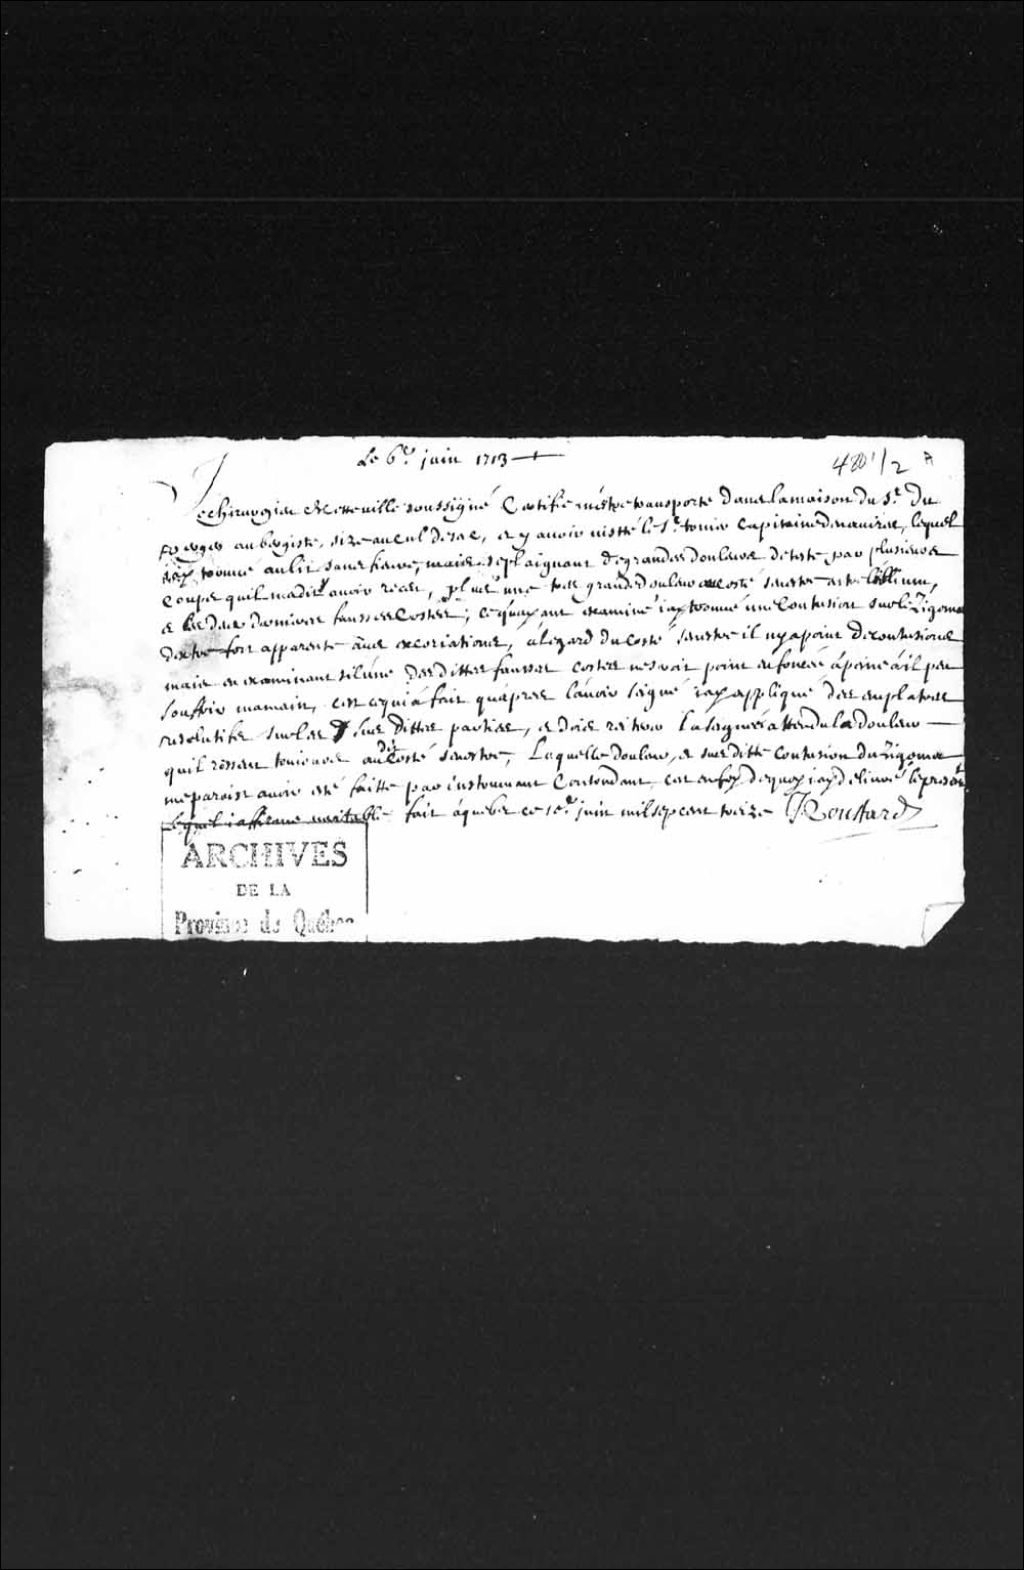 Le 6e. juin 1713
480 1/2 A
Je chirurgien de cette ville soussigné Certifie mestre transporté dans la maison du Sr. Du
aubergiste, size au cul de sac, et y avoir visitté le Sr. Capitaine de navire, lequel
jay trouvé au lit sans fievre, mais se plaignant de grandes douleurs de teste par plusieurs
coups quil ma dit avoir receu, plus une tres grande douleur au costé senestre entre
et les deux dernieres fausses costes; ce quayant examiné jay trouvé une Contusion sur le Zigoma
dextre fort apparente avec excoriations, a legard du costé senestre il ny a point de contusions
mais en examinant si lune des dittes fausses costes nestoit point enfoncée a peine a il peu
souffrir ma main, cest ce qui a fait quapres lavoir saigné jay appliqué des emplatres
resolutifs sur les sus dittes parties, et dois reiterer la saignée attendu la douleur
quil ressent toujours au dit costé senestre, Laquelle douleur, et sus ditte contusion du Zigoma
me paroist avoir esté faitte par instrument Contondant, cest en foy de quoy jay delivré le present
lequel jaffirme veritable fait a quebec ce 10e. juin mil sept cent treize JRoussard
ARCHIVES
DE LA
Province de Québec